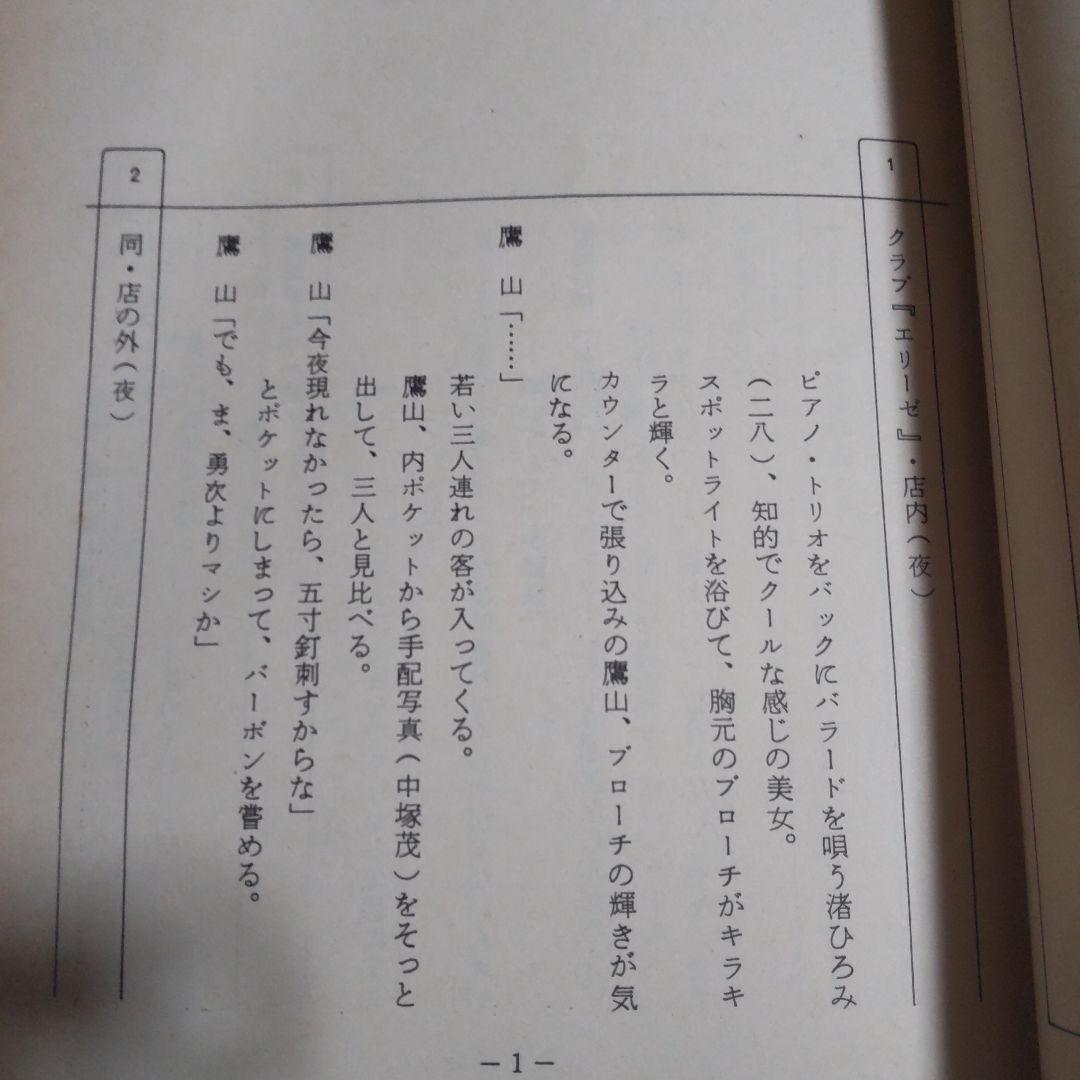 1 クラブ『エリーゼ』・店内（夜）
ピアノ・トリオをバックにバラードを唄う渚ひろみ
（二八）、知的でクールな感じの美女。
スポットライトを浴びて、胸元のブローチがキラキ
ラと輝く。
カウンターで張り込みの鷹山、ブローチの輝きが気
になる。
鷹　山「……」
若い三人連れの客が入ってくる。
鷹山、内ポケットから手配写真（中塚茂）をそっと
出して、三人と見比べる。
鷹　山「今夜現れなかったら、五寸釘刺すからな」
とポケットにしまって、バーボンを嘗める。
鷹　山「でも、ま、勇次よりマシか」
2 同・店の外（夜）
－1－